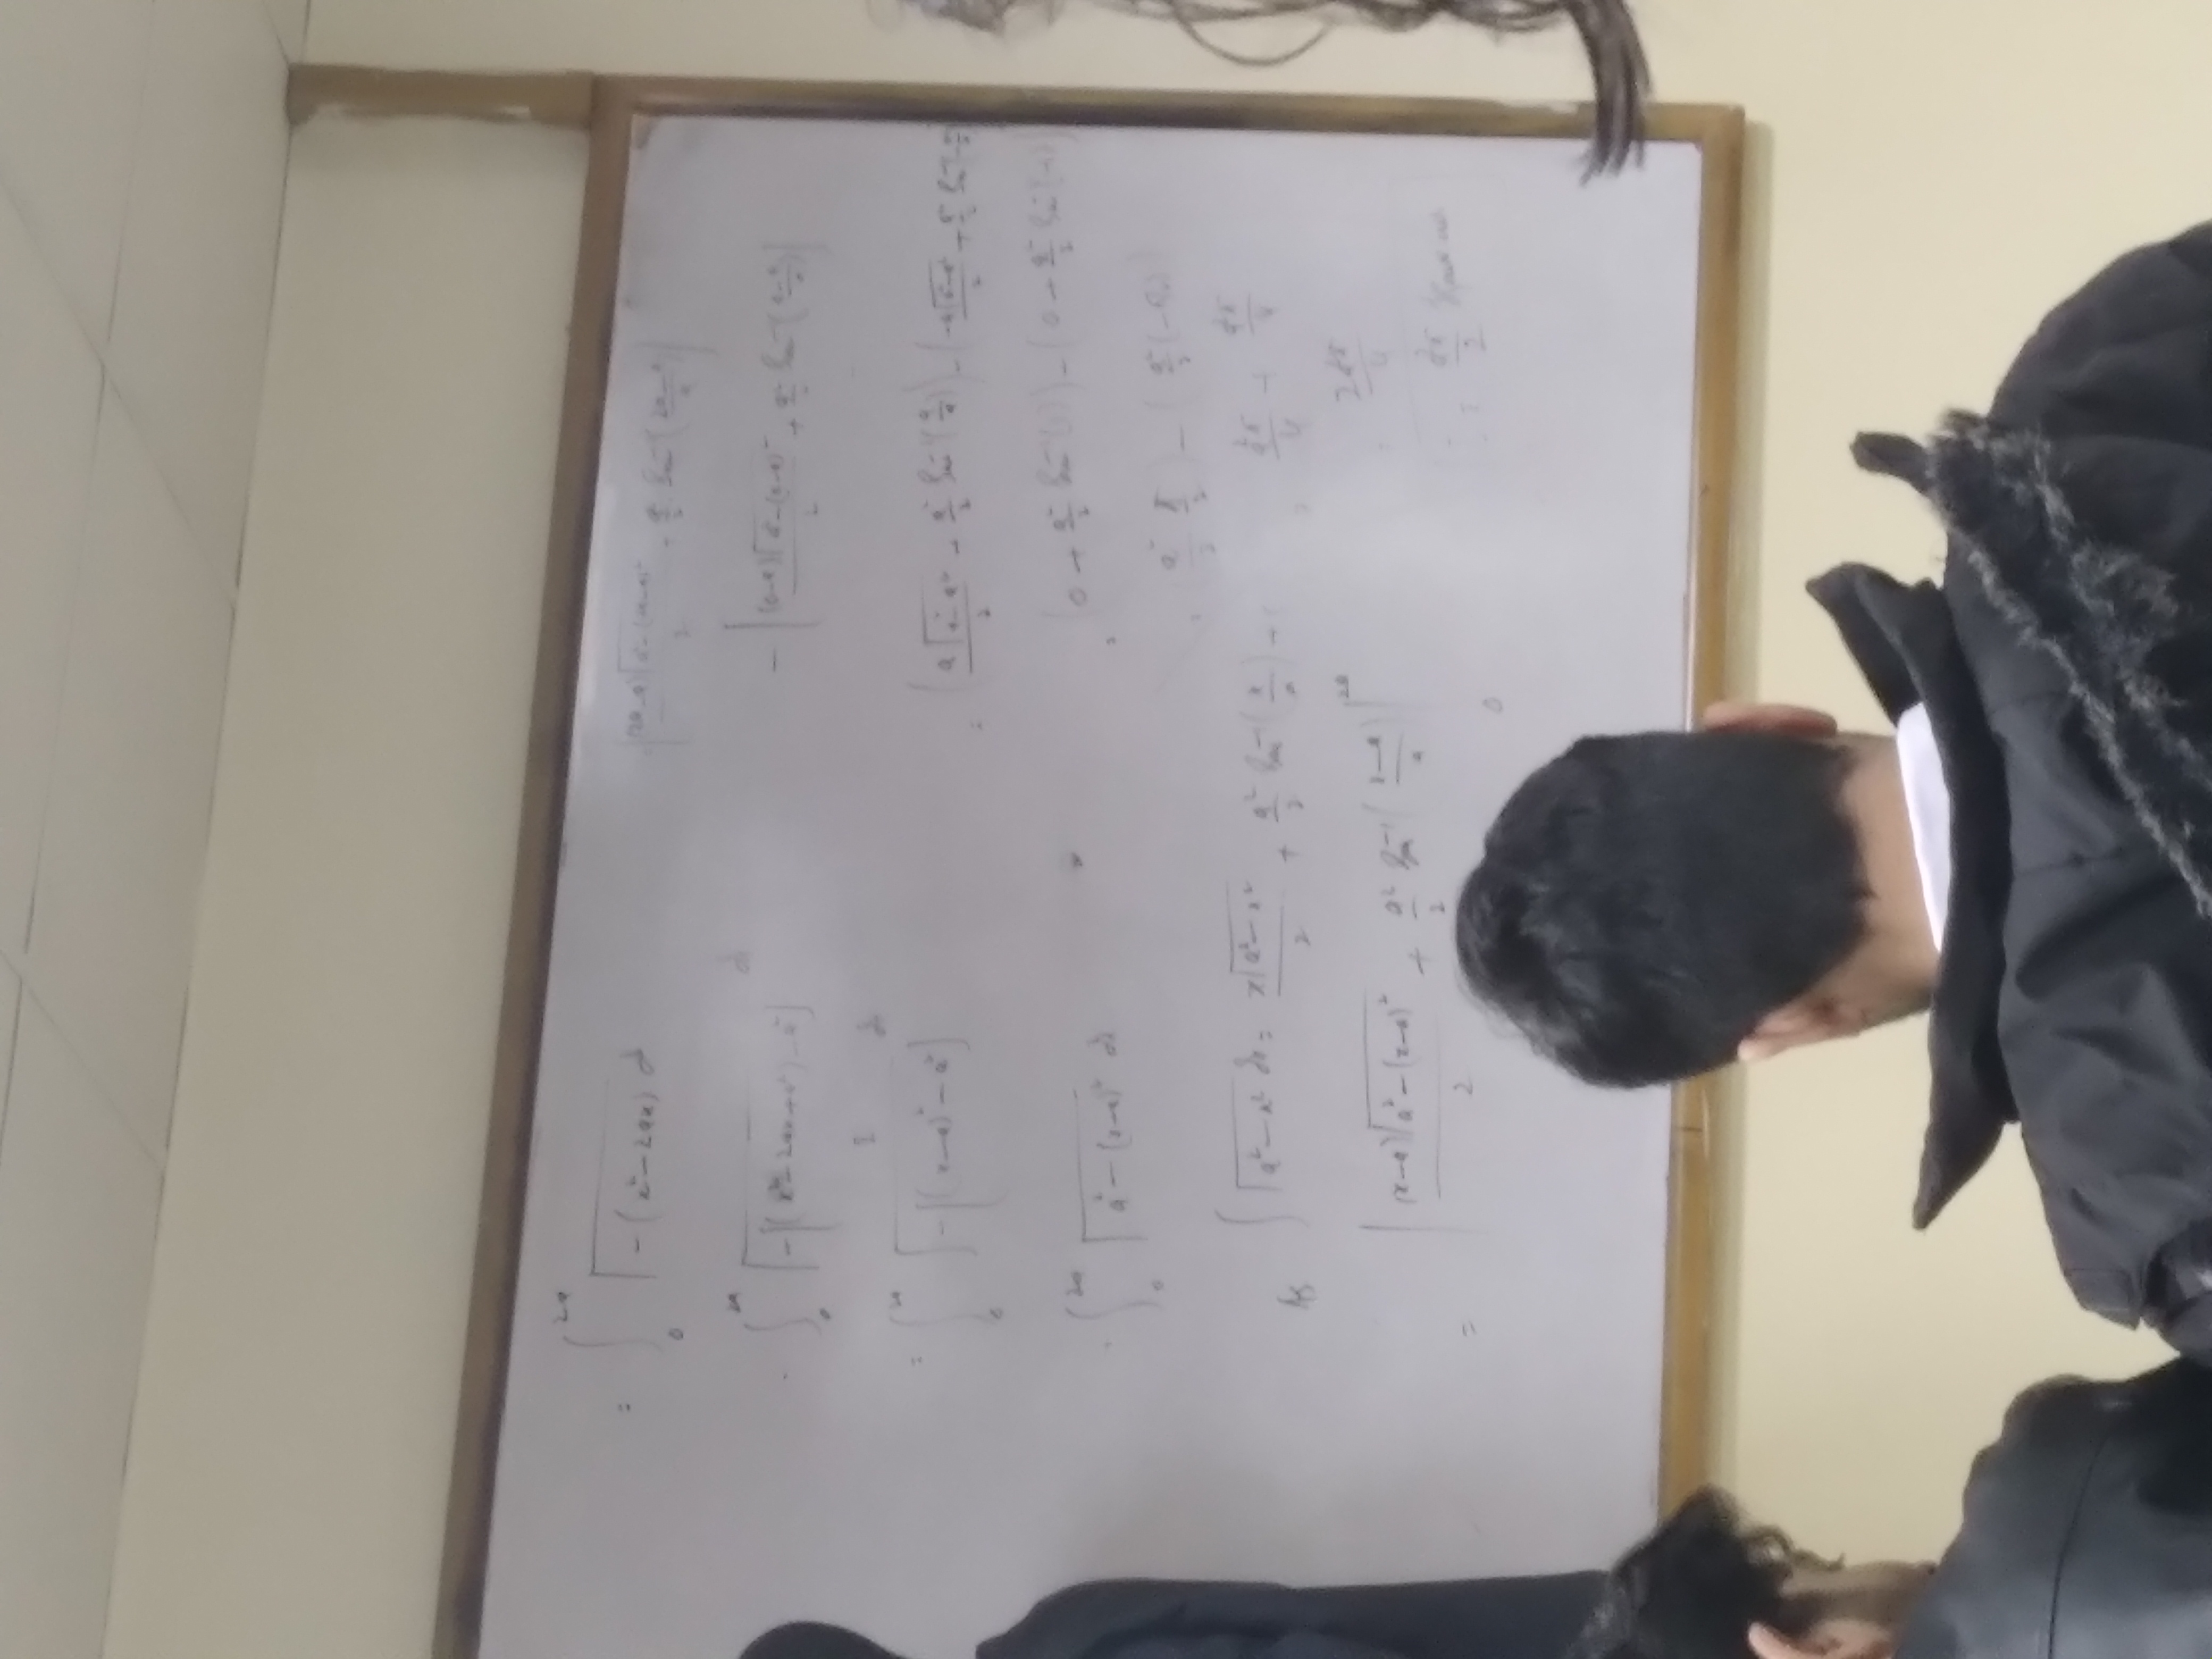 = ∫₀^{2a} √(-(x² - 2ax)) d
∫₀^{2a} √(-[(x² - 2ax + a²) - a²]) dx
= ∫₀^{2a} √(-[(x-a)² - a²]) dx
∫₀^{2a} √(a² - (x-a)²) dx
As ∫ √(a² - x²) dx = x√(a² - x²)/2 + a²/2 Sin⁻¹(x/a) +
= | (x-a)√(a² - (x-a)²)/2 + a²/2 Sin⁻¹((x-a)/a) |₀^{2a}
= [(2a-a)√(a² - (2a-a)²)/2 + a²/2 Sin⁻¹((2a-a)/a)]
- [(0-a)√(a² - (0-a)²)/2 + a²/2 Sin⁻¹((0-a)/a)]
= (a√(a² - a²)/2 + a²/2 Sin⁻¹(a/a)) - (-a√(a² - a²)/2 + a²/2 Sin⁻¹(-a/a))
= (0 + a²/2 Sin⁻¹(1)) - (0 + a²/2 Sin⁻¹(-1))
= (a²/2 π/2) - (a²/2 (-π/2))
= a²π/4 + a²π/4
= 2a²π/4
I = a²π/2